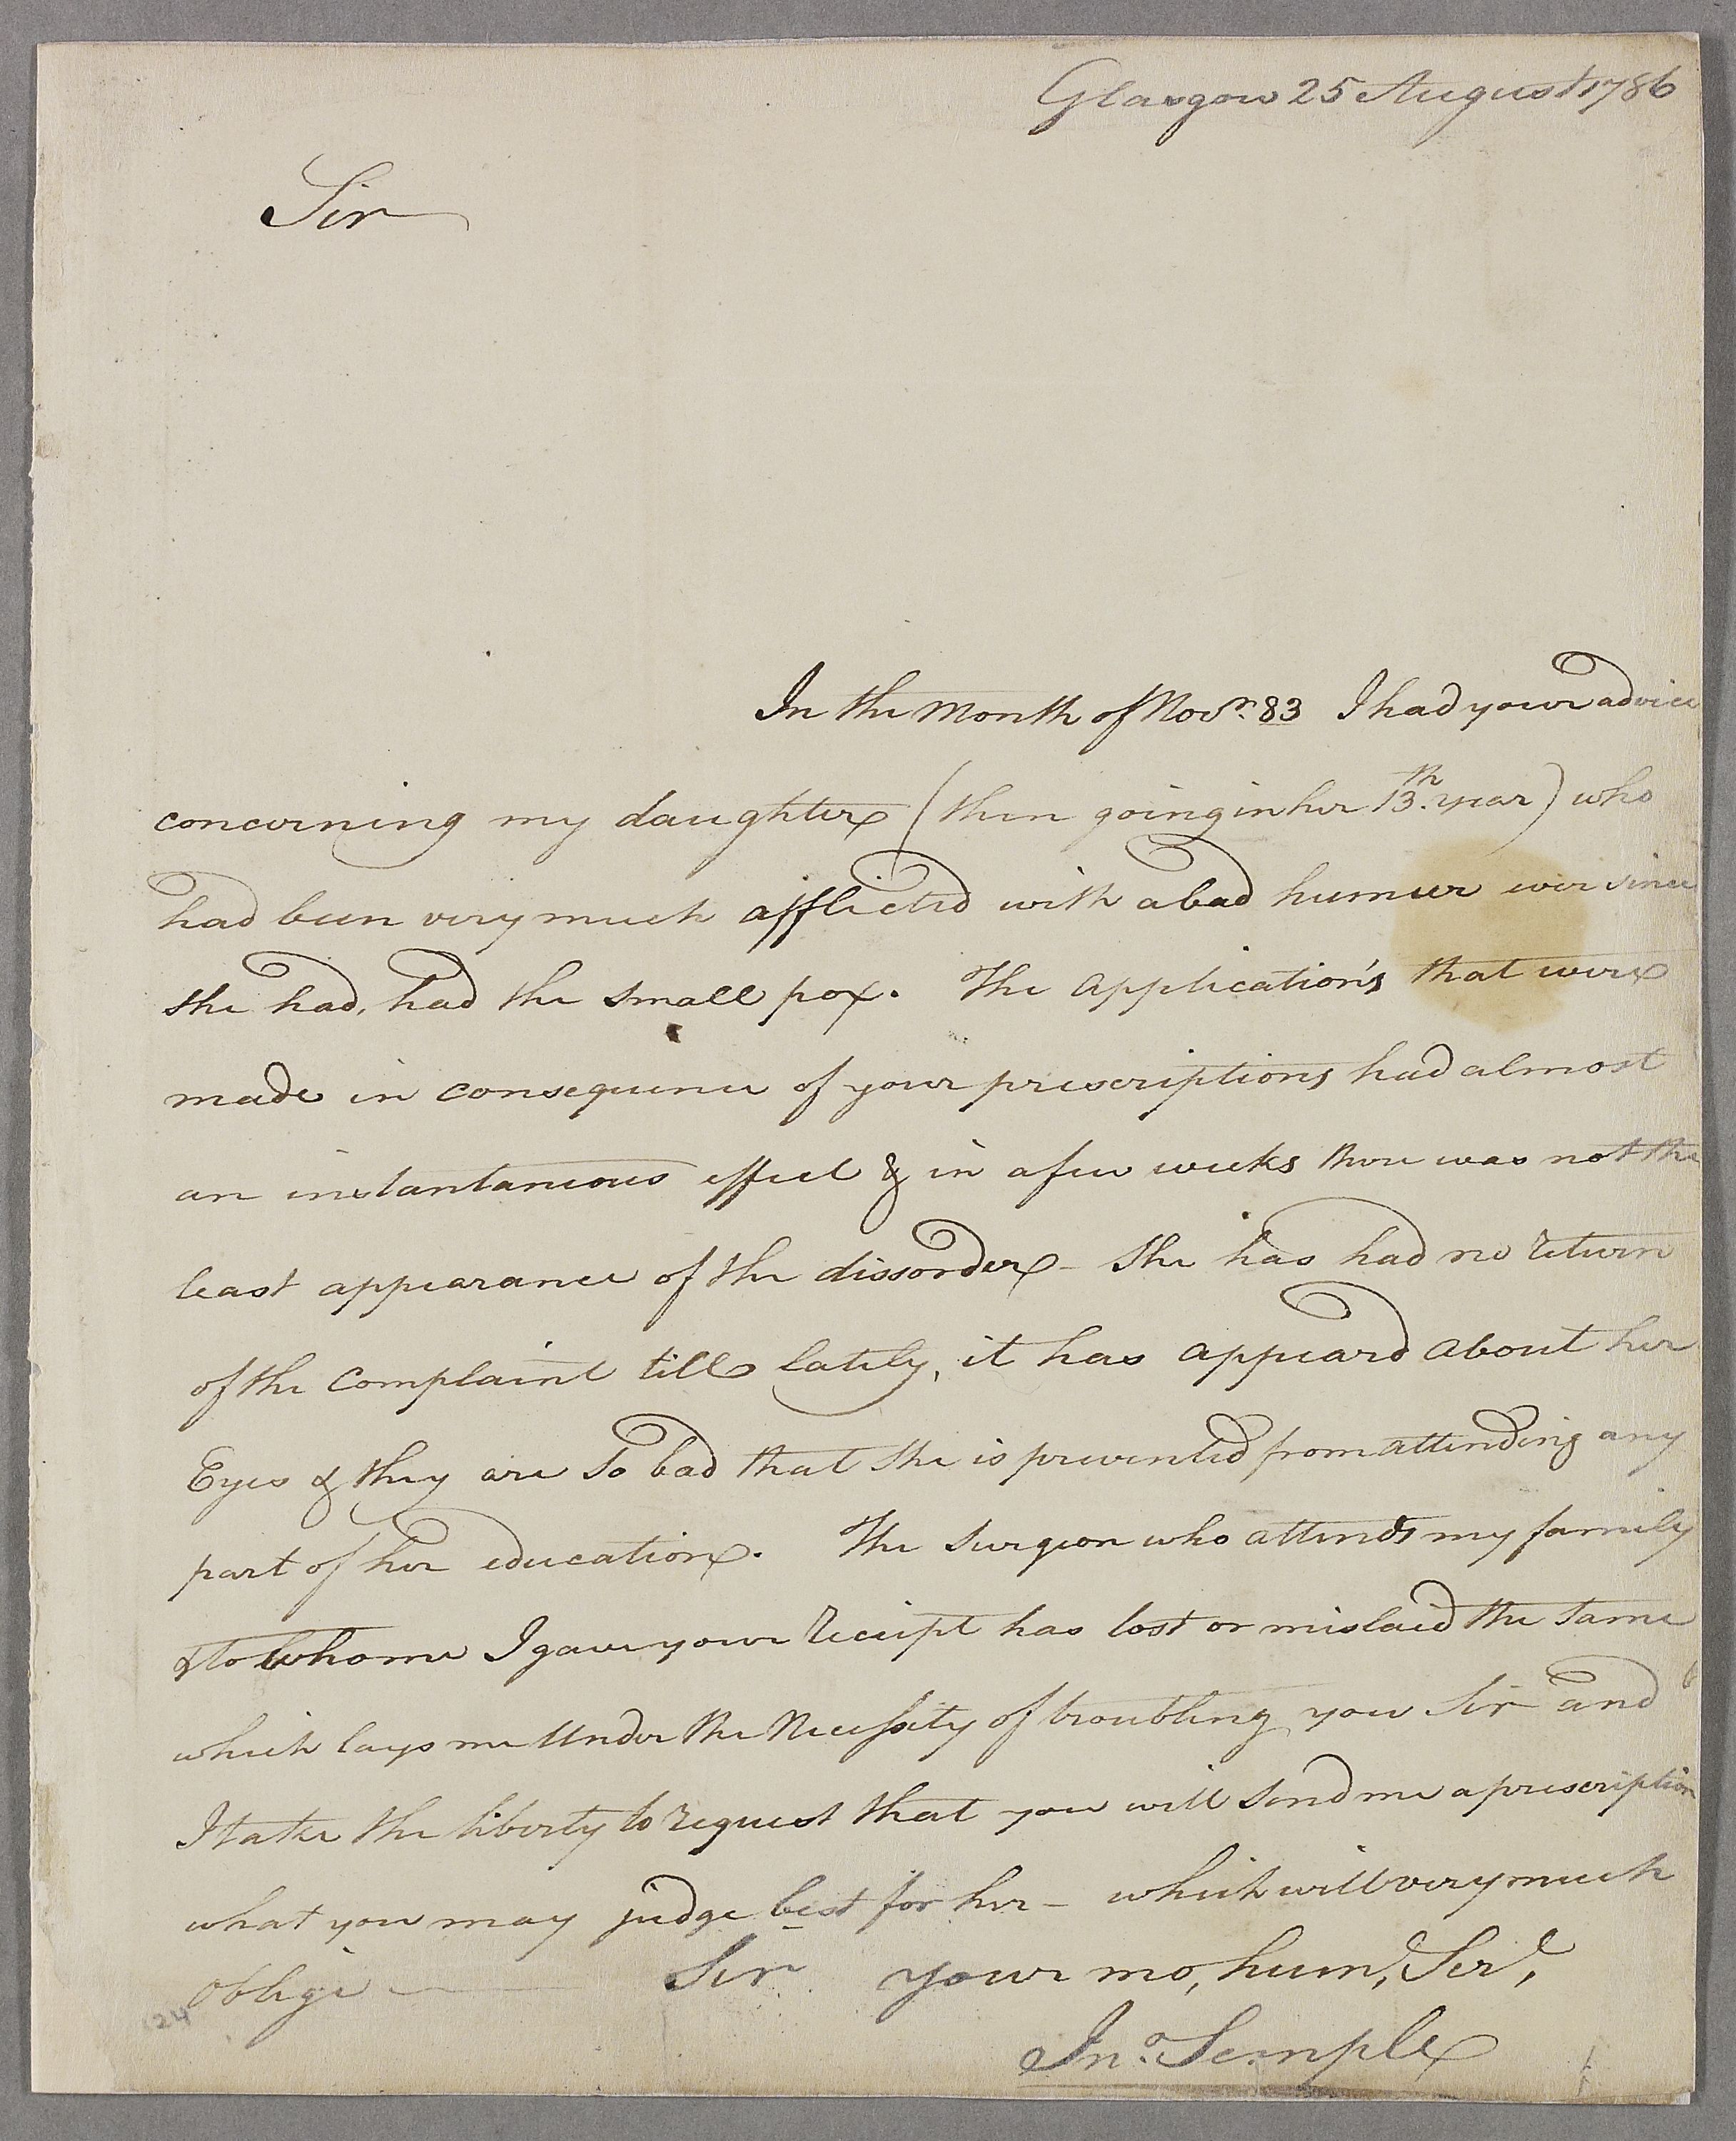 Glasgow 25 August 1786
Sir
In the Month of Novr. 83 I had your advice
concerning my daughter (then going in her 13th. year) who
had been very much afflicted with a bad humur ever since
she had, had the small pox. The Application's that were
made in consequence of your prescriptions had almost
an instantaneous effect & in a few weeks there was not the
least appearance of the dissorder - She has had no return
of the Complaint till lately, it has appeard about her
Eyes & they are so bad that she is prevented from attending any
part of her education. The Surgeon who attends my family
& to whome I gave your receipt has lost or mislaid the same
which lays me Under the Necessity of troubling you Sir and
I take the liberty to request that you will send me a prescription
what you may judge best for her - which will very much
oblige Sir your mo, hum, Ser,
Jno. Semple
24